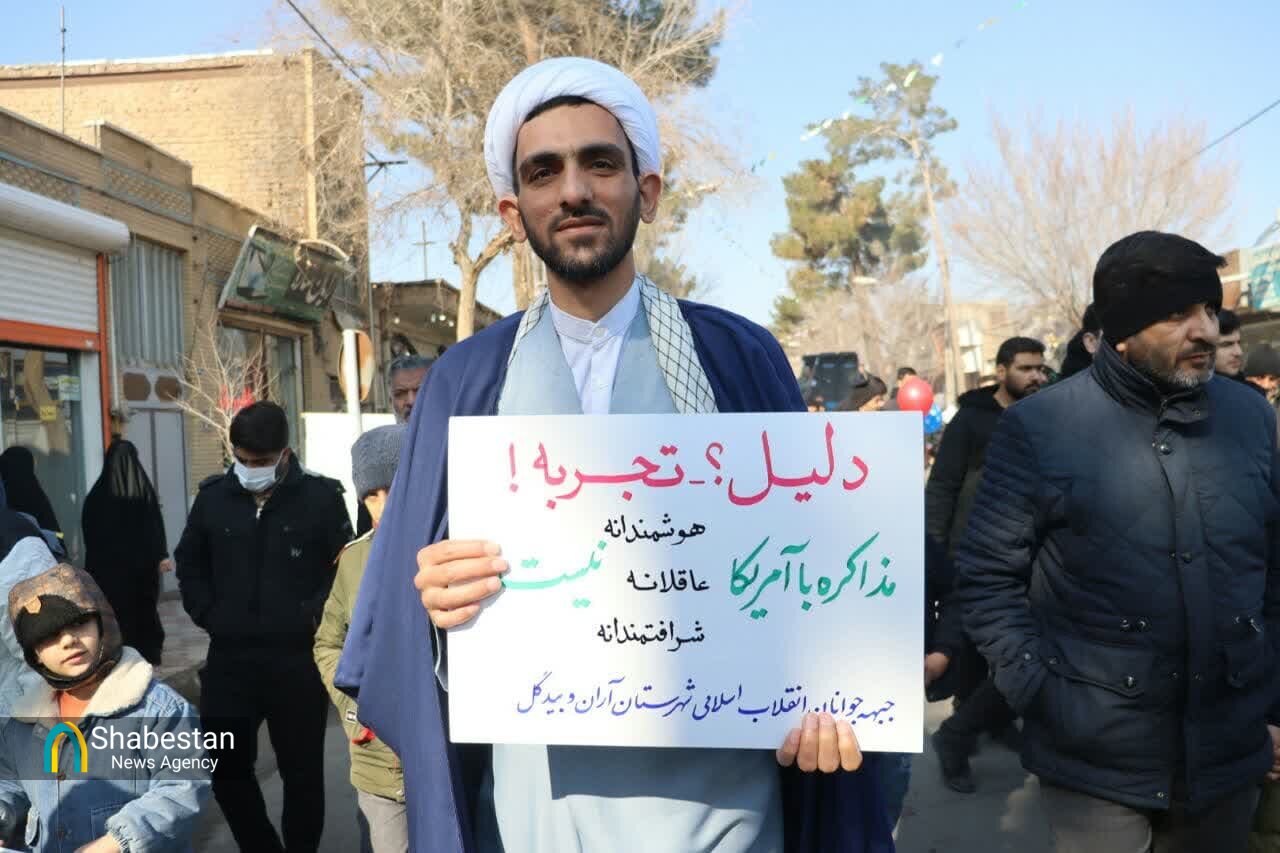 دلیل؟ـ تجربه!
هوشمندانه
مذاکره با آمریکا عاقلانه نیست
شرافتمندانه
جبهه جوانان انقلاب اسلامی شهرستان آران و بیدگل
Shabestan
News Agency